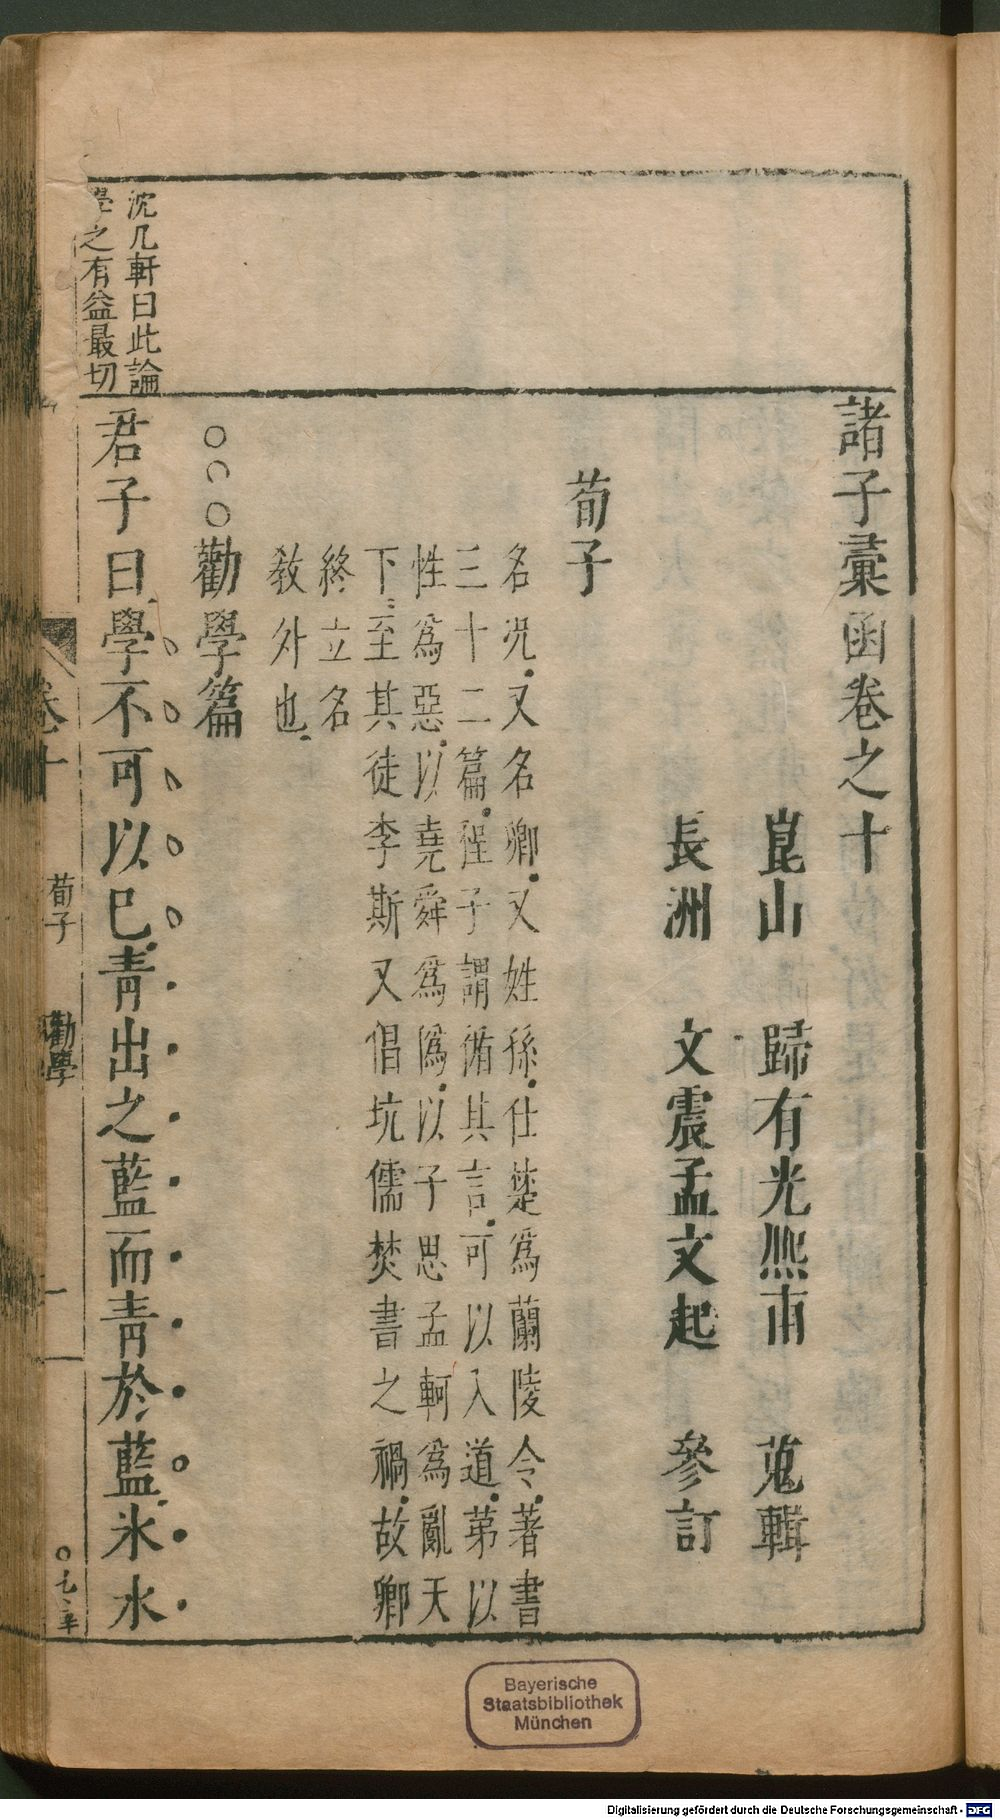 諸子彙函卷之十
崑山 歸有光熙甫 蒐輯
長洲 文震孟文起 參訂
荀子
名况又名卿又姓孫仕楚爲蘭陵令著書
三十二篇程子謂循其言可以入道第以
性爲惡以堯舜爲僞以子思孟軻爲亂天
下至其徒李斯又倡坑儒焚書之禍故卿
終立名
敎外也
○○○勸學篇
沈几軒曰此論
學之有益最切
君子曰學不可以已靑出之藍而靑於藍氷水
卷十
荀子
勸學
一
Bayerische
Staatsbibliothek
München
Digitalisierung gefördert durch die Deutsche Forschungsgemeinschaft - DFG